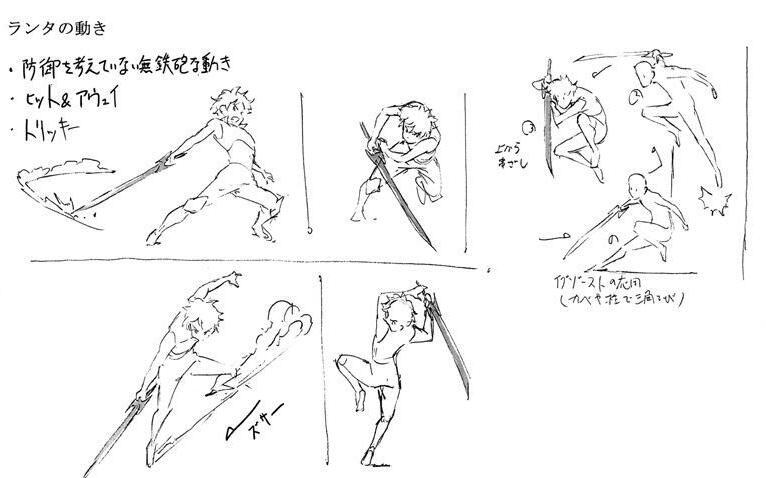 ランタの動き
・防御を考えていない無鉄砲な動き
・ヒット&アウェイ
・トリッキー
上から
まざし
イグゾーストの応用
(カベや柱で三角とび)
の
ズサー